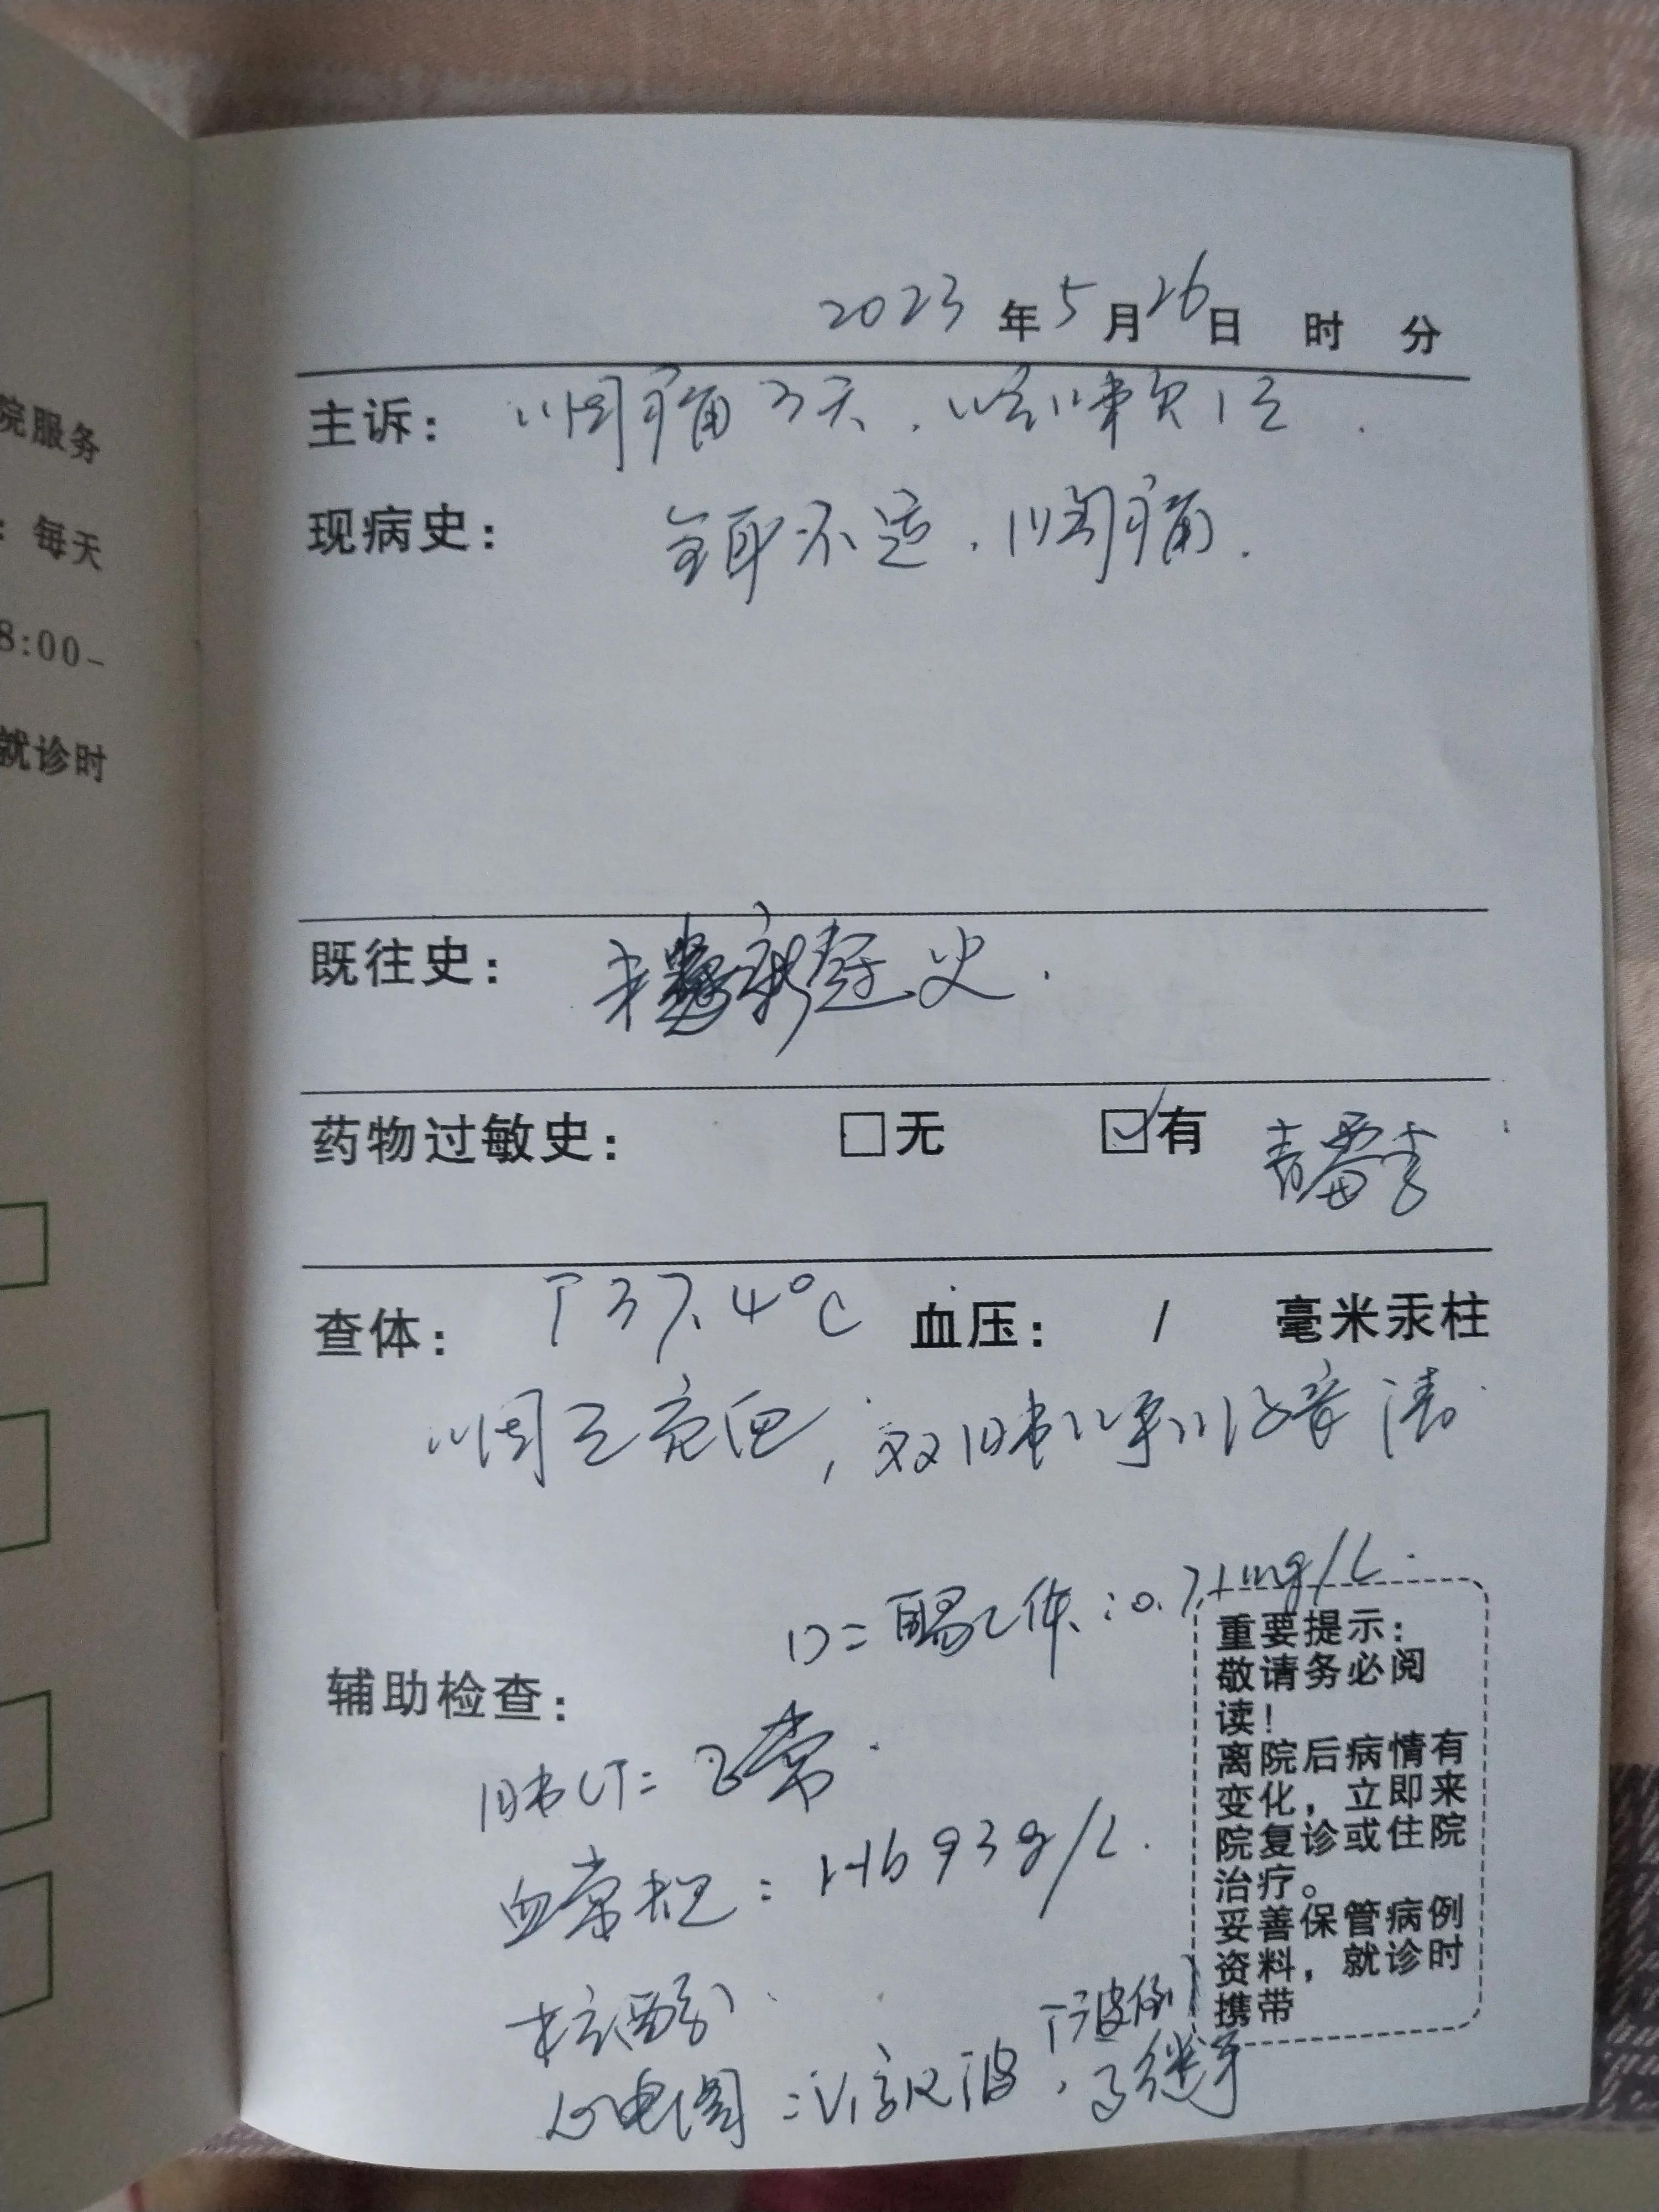 院服务
：每天
8:00-
就诊时
2023年5月26日 时 分
主诉：咽痛3天.咳嗽
现病史：全身不适.咽痛.
既往史：未 新冠史.
药物过敏史：□无 ☑有 青霉素
查体：T 37.4℃ 血压： / 毫米汞柱
咽 充血，双肺呼吸音清
D=聚体:0.71mg/L.
辅助检查：
肺CT=正常.
血常规:Hb 93g/L.
核酸
T波倒
心电图:V1 R波,
重要提示：
敬请务必阅
读！
离院后病情有
变化，立即来
院复诊或住院
治疗。
妥善保管病例
资料，就诊时
携带